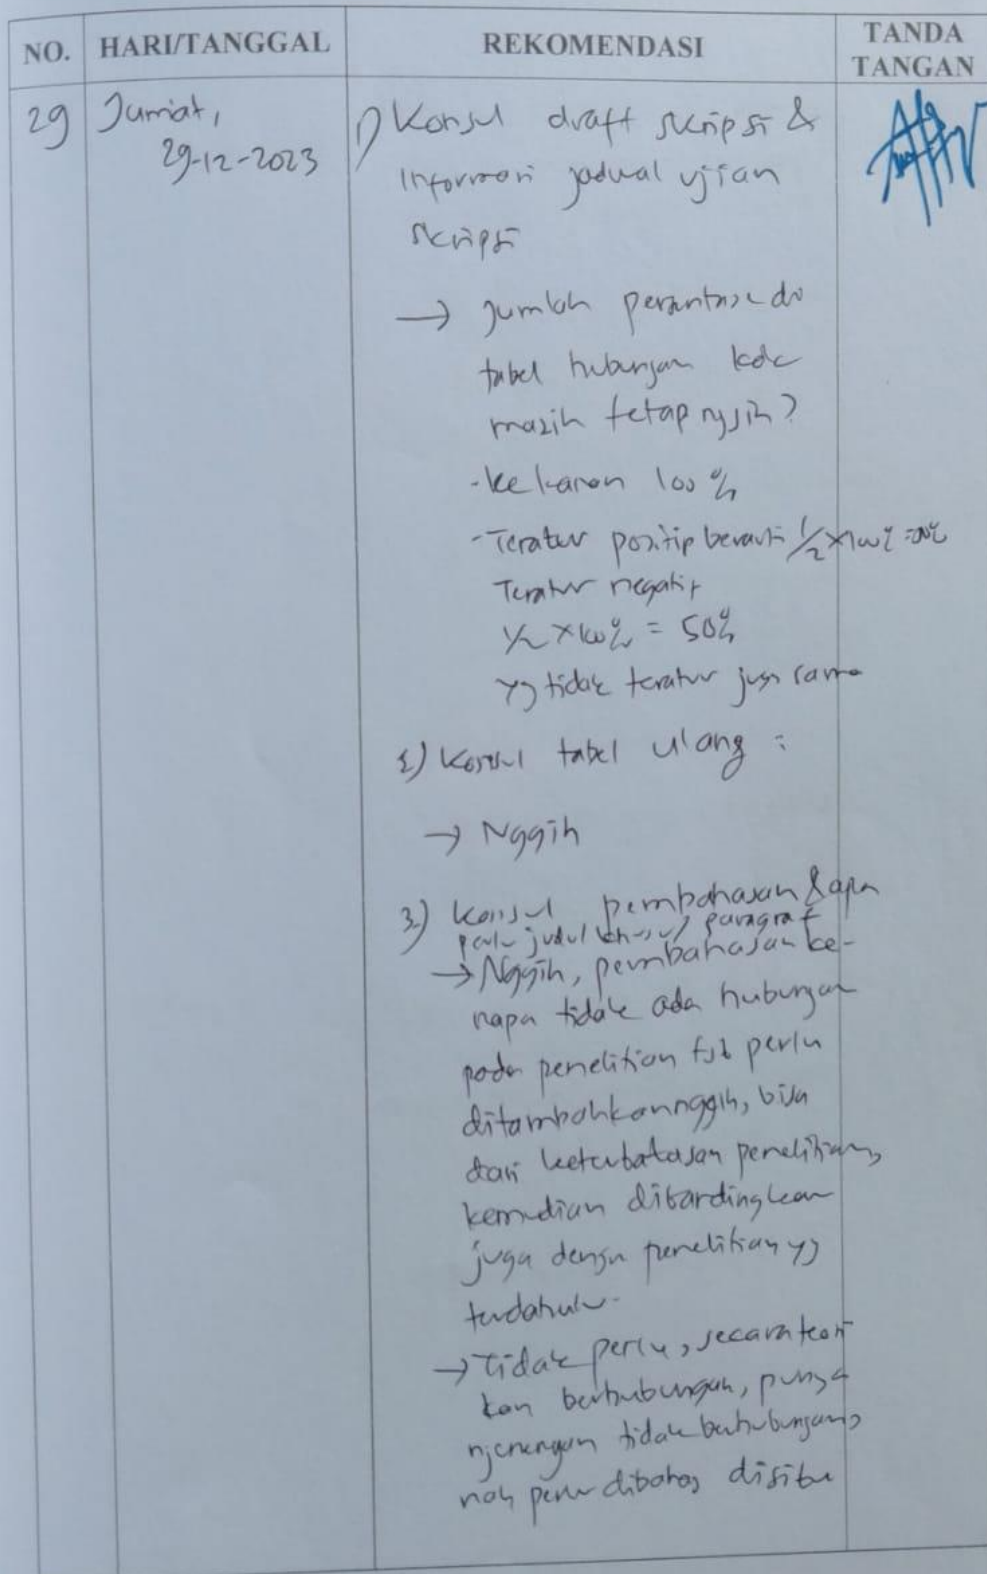 NO. HARI/TANGGAL REKOMENDASI TANDA TANGAN
29 Jumat, 29-12-2023
1) Konsul draft skripsi &
Informasi jadual ujian
skripsi
→ Jumlah persentase di
tabel hubungan
masih tetap nggih?
- ke kanan 100%
- Teratur positip berarti 1/2 x 100% = 50%
Teratur negatip
1/2 x 100% = 50%
yg tidak teratur juga sama
2) Konsul tabel ulang :
→ Nggih
3) Konsul pembahasan & apa
perlu judul khusus / paragraf
→ Nggih, pembahasan ke-
napa tidak ada hubungan
pada penelitian tsb perlu
ditambahkan nggih, bisa
dari keterbatasan penelitian,
kemudian dibandingkan
juga dengan penelitian yg
terdahulu.
→ tidak perlu, secara teori
kan berhubungan, punya
njenengan tidak berhubungan,
nah perlu dibahas disitu